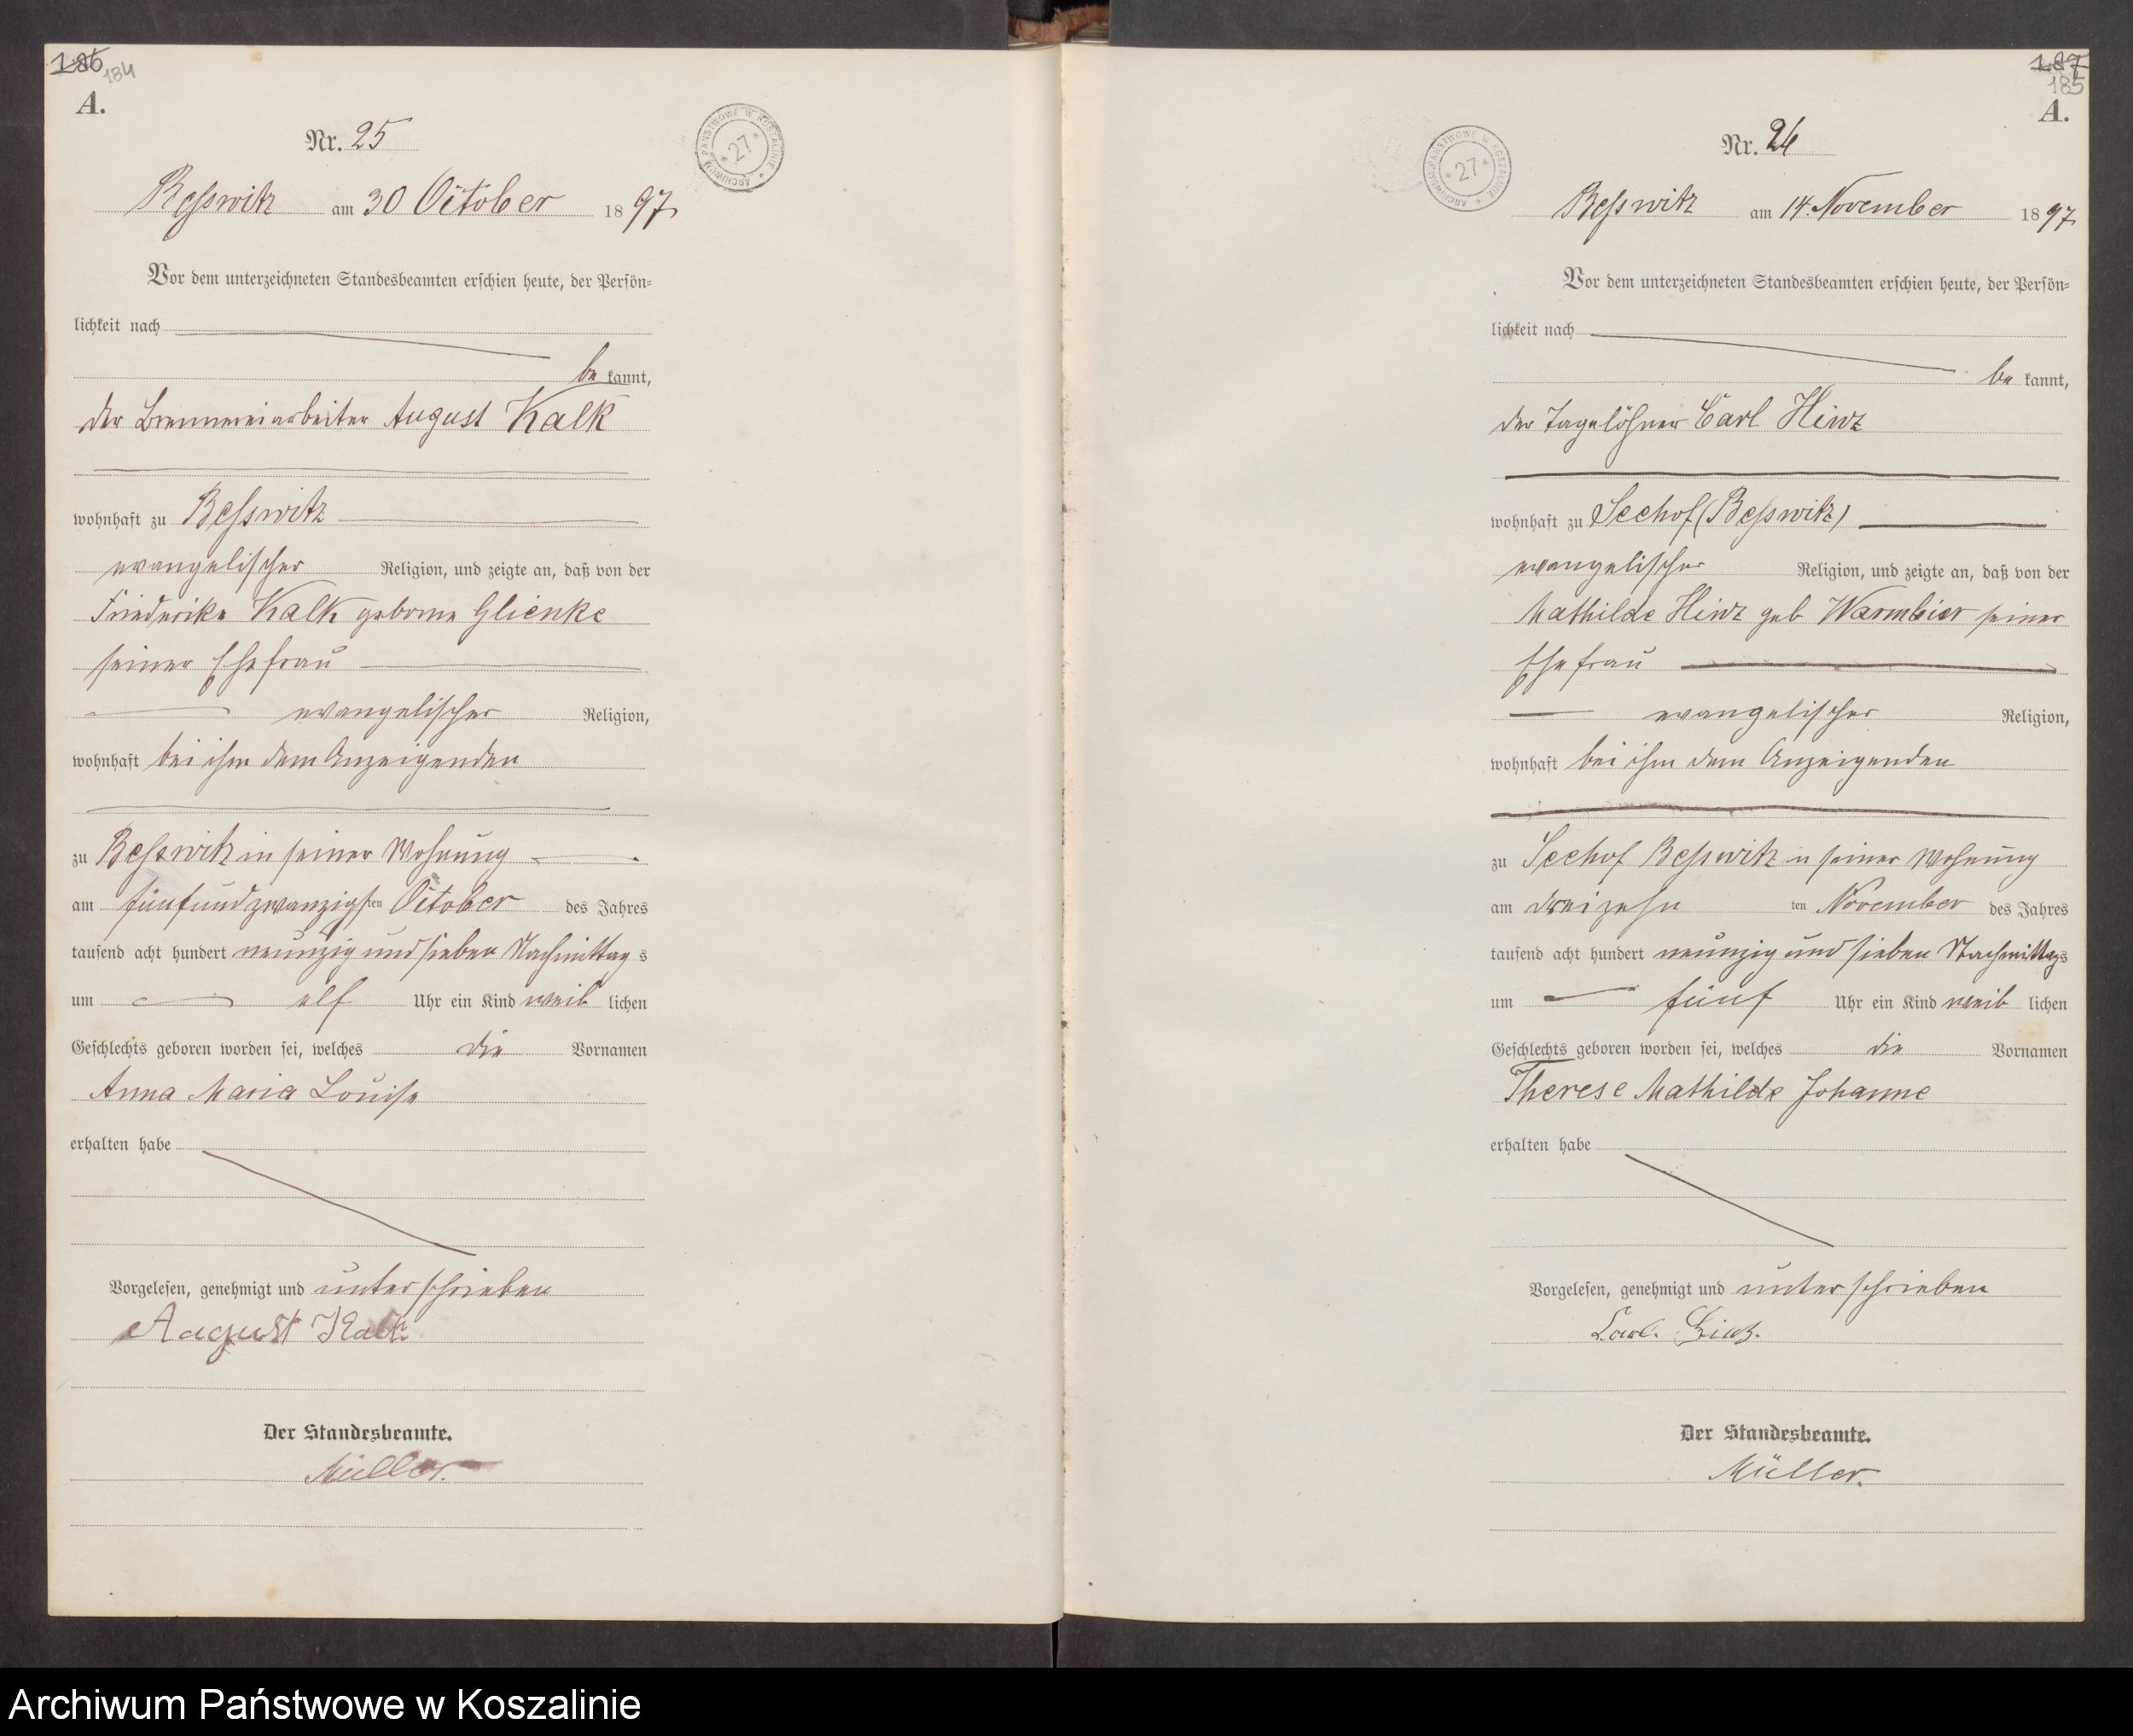 186 184
A.
Nr. 25
Besswitz am 30 October 1897
Vor dem unterzeichneten Standesbeamten erschien heute, der Persön-
lichkeit nach
bekannt,
der Brennereiarbeiter August Kalk
wohnhaft zu Besswitz
evangelischer Religion, und zeigte an, daß von der
Friederike Kalk geborne Glienke
seiner Ehefrau
evangelischer Religion,
wohnhaft bei ihm dem Anzeigenden
zu Besswitz in seiner Wohnung
am fünfundzwanzigsten October des Jahres
tausend acht hundert neunzig und sieben Nachmittags
um elf Uhr ein Kind weiblichen
Geschlechts geboren worden sei, welches die Vornamen
Anna Maria Louise
erhalten habe
Vorgelesen, genehmigt und unterschrieben
August Kalk
Der Standesbeamte.
Müller.
ARCHIWUM PAŃSTWOWE W KOSZALINIE * 27 *
187
185
A.
Nr. 26
Besswitz am 14. November 1897
Vor dem unterzeichneten Standesbeamten erschien heute, der Persön-
lichkeit nach
bekannt,
der Tagelöhner Carl Hinz
wohnhaft zu Seehof (Besswitz)
evangelischer Religion, und zeigte an, daß von der
Mathilde Hinz geb Warmbier seiner
Ehefrau
evangelischer Religion,
wohnhaft bei ihm dem Anzeigenden
zu Seehof Besswitz in seiner Wohnung
am dreizehnten November des Jahres
tausend acht hundert neunzig und sieben Nachmittags
um fünf Uhr ein Kind weiblichen
Geschlechts geboren worden sei, welches die Vornamen
Therese Mathilde Johanne
erhalten habe
Vorgelesen, genehmigt und unterschrieben
Carl. Hinz.
Der Standesbeamte.
Müller.
ARCHIWUM PAŃSTWOWE W KOSZALINIE * 27 *
Archiwum Państwowe w Koszalinie